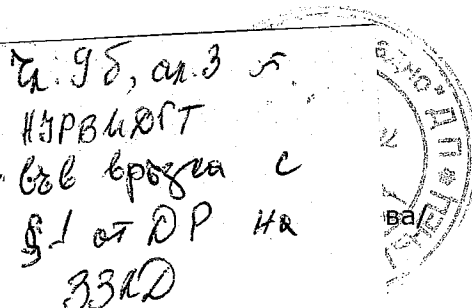 Чл. 9б, ал. 3 от
НУРВИДГТ
във връзка с
§1 от ДР на
ЗЗЛД
ва/